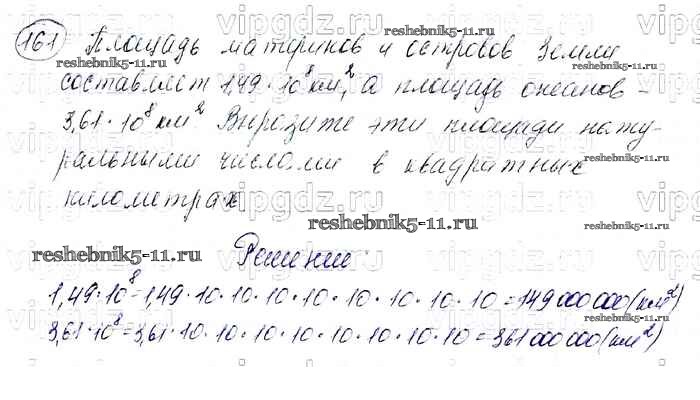 161 Площадь материков и островов Земли
составляет 1,49 · 10⁸ км², а площадь океанов –
3,61 · 10⁸ км². Выразите эти площади нату-
ральными числами в квадратных
километрах.
reshebnik5-11.ru
reshebnik5-11.ru
reshebnik5-11.ru
reshebnik5-11.ru
Решение:
1,49·10⁸=1,49·10·10·10·10·10·10·10·10=149 000 000(км²)
3,61·10⁸=3,61·10·10·10·10·10·10·10·10=361 000 000(км²)